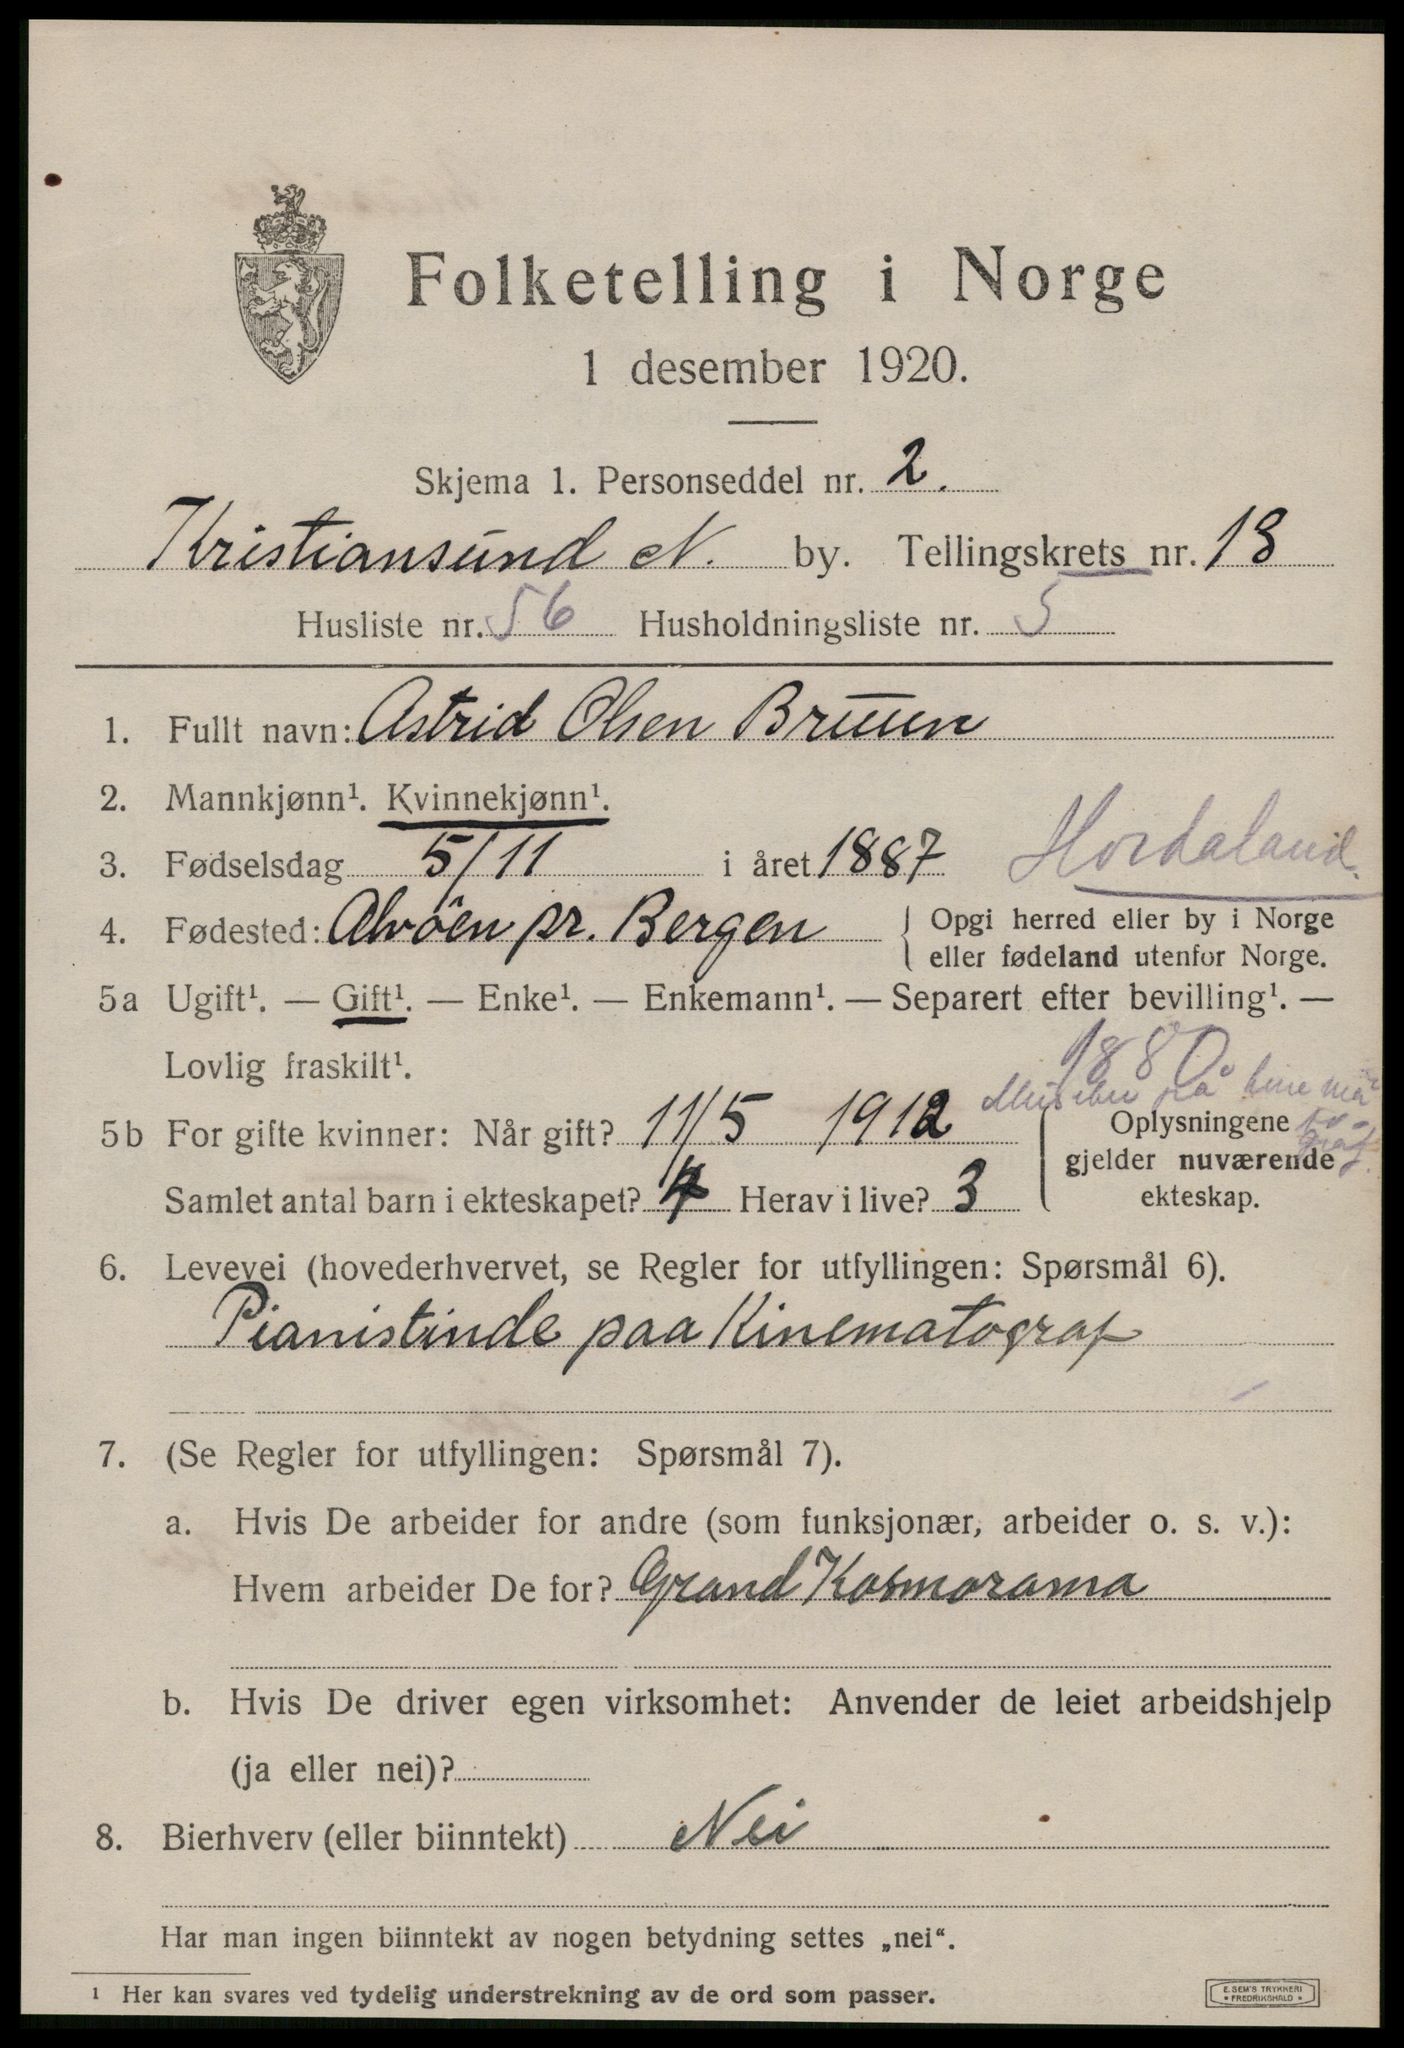 Folketelling i Norge
1 desember 1920.
Skjema 1. Personseddel nr. 2.
Kristiansund N. by. Tellingskrets nr. 18
Husliste nr. 56 Husholdningsliste nr. 5
1. Fullt navn: Astrid Olsen Bruun
2. Mannkjønn¹. Kvinnekjønn¹.
Hordaland.
3. Fødselsdag 5/11 i året 1887
4. Fødested: Alvöen pr. Bergen { Opgi herred eller by i Norge
eller fødeland utenfor Norge.
5a Ugift¹. — Gift¹. — Enke¹. — Enkemann¹. — Separert efter bevilling¹. —
Lovlig fraskilt¹.
1880
på kinema
to-
graf.
5b For gifte kvinner: Når gift? 11/5 1912 { Oplysningene
gjelder nuværende
Samlet antal barn i ekteskapet? 4 Herav i live? 3 ekteskap.
6. Levevei (hovederhvervet, se Regler for utfyllingen: Spørsmål 6).
Pianistinde paa Kinematograf
7. (Se Regler for utfyllingen: Spørsmål 7).
a. Hvis De arbeider for andre (som funksjonær, arbeider o. s. v.):
Hvem arbeider De for? Grand Kosmorama
b. Hvis De driver egen virksomhet: Anvender de leiet arbeidshjelp
(ja eller nei)?
8. Bierhverv (eller biinntekt) Nei
Har man ingen biinntekt av nogen betydning settes „nei“.
¹ Her kan svares ved tydelig understrekning av de ord som passer.
E. SEM'S TRYKKERI
* FREDRIKSHALD *